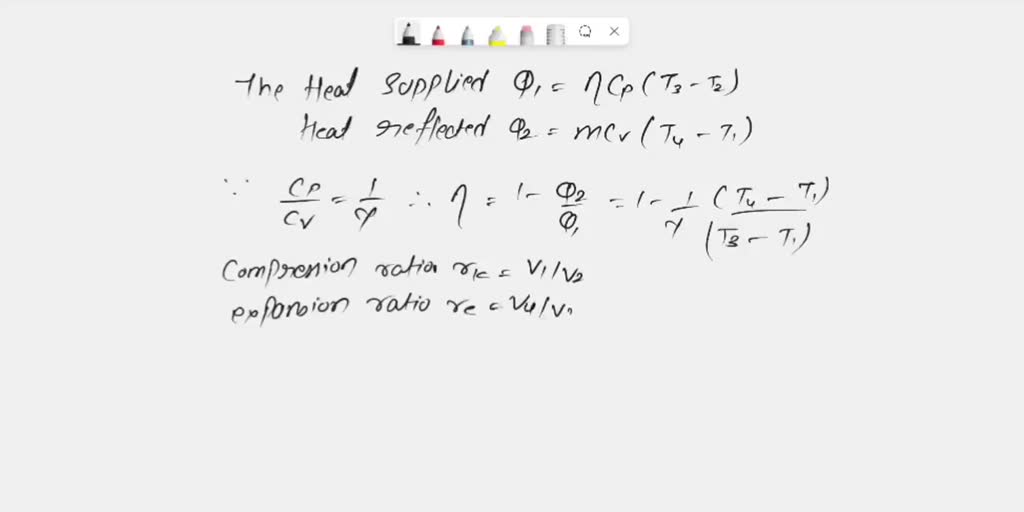 The Heat Supplied Q₁ = ηCp(T₃ - T₂)
Heat reflected Q₂ = mCv(T₄ - T₁)
∵ Cp/Cv = 1/γ ∴ η = 1 - Q₂/Q₁ = 1 - 1/γ (T₄ - T₁)/(T₃ - T₁)
Compression ratio rk = V₁/V₂
expansion ratio re = V₄/V